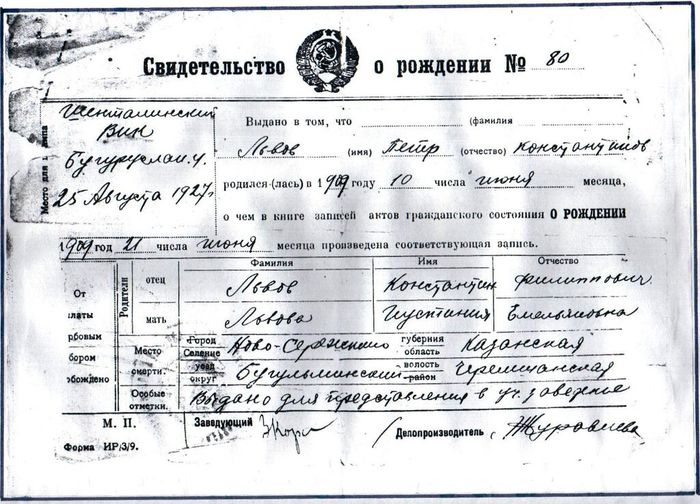 Свидетельство о рождении № 80
Шенталинский
Вик
Бугуруслан. у.
25 Августа 1927 г.
Выдано в том, что (фамилия
Львов (имя) Петр (отчество) Константинов
родился(-лась) в 1909 году 10 числа июня месяца,
о чем в книге записей актов гражданского состояния О РОЖДЕНИИ
1909 год 21 числа июня месяца произведена соответствующая запись.
Фамилия Имя Отчество
Родители
отец Львов Константин Филиппович
мать Львова Иустиния Емельяновна
От
латы
рбовым
бором
вобождено
Место
смерти.
Город
Селение
Ново-Сережкино губерния
область
Казанская
уезд
округ
Бугульминский волость
район
Черемшанская
Особые
отметки.
Выдано для представления в
М. П.
Форма ИР/3/9.
Заведующий
Делопроизводитель Журавлева